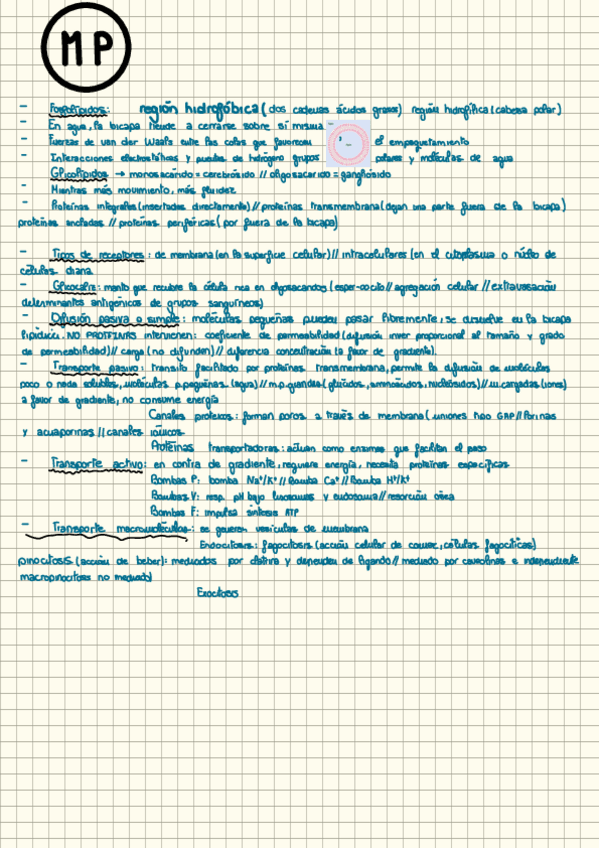 MP
- Fosfolípidos: región hidrofóbica (dos cadenas ácidos grasos) región hidrofílica (cabeza polar)
- En agua, la bicapa tiende a cerrarse sobre sí misma
- Fuerzas de van der Waals entre las colas que favorecen el empaquetamiento
- Interacciones electrostáticas y puentes de hidrógeno grupos polares y moléculas de agua
Glicolípidos → monosacárido = cerebrósido // oligosacárido = gangliósido
- Mientras más movimiento, más fluidez
- Proteínas integrales (insertadas directamente) // proteínas transmembrana (dejan una parte fuera de la bicapa)
proteínas ancladas // proteínas periféricas (por fuera de la bicapa)
- Tipos de receptores: de membrana (en la superficie celular) // intracelulares (en el citoplasma o núcleo de
células diana
- Glicocalix: manto que recubre la célula rica en oligosacáridos (esper-oocito // agregación celular // extravasación
determinantes antigénicos de grupos sanguíneos)
- Difusión pasiva o simple: moléculas pequeñas pueden pasar libremente, se disuelve en la bicapa
lipídica. NO PROTEINAS intervienen: coeficiente de permeabilidad (difusión inver proporcional al tamaño y grado
de permeabilidad) // carga (no difunden) // diferencia concentración (a favor de gradiente).
- Transporte pasivo: transito facilitado por proteínas transmembrana, permite la difusión de moléculas
poco o nada solubles, moléculas p.pequeñas (agua) // m.p.grandes (glúcidos, aminoácidos, nucleósidos) // m.cargadas (iones)
a favor de gradiente, no consume energía
Canales proteicos: forman poros a través de membrana (uniones tipo GAP // Porinas
y acuaporinas // canales iónicos
Proteínas transportadoras: actúan como enzimas que facilitan el paso
- Transporte activo: en contra de gradiente, requiere energía, necesita proteínas específicas
Bombas P: bomba Na⁺/K⁺ // Bomba Ca⁺ // Bomba H⁺/K⁺
Bombas V: resp. pH bajo lisosomas y endosoma // resorción ósea
Bombas F: impulsa síntesis ATP
- Transporte macromoléculas: se generan vesículas de membrana
Endocitosis: fagocitosis (acción celular de comer, células fagocíticas)
pinocitosis (acción de beber): mediados por clatrina y dependen de ligando // mediado por caveolinas e independiente
macropinocitosis no mediado)
Exocitosis